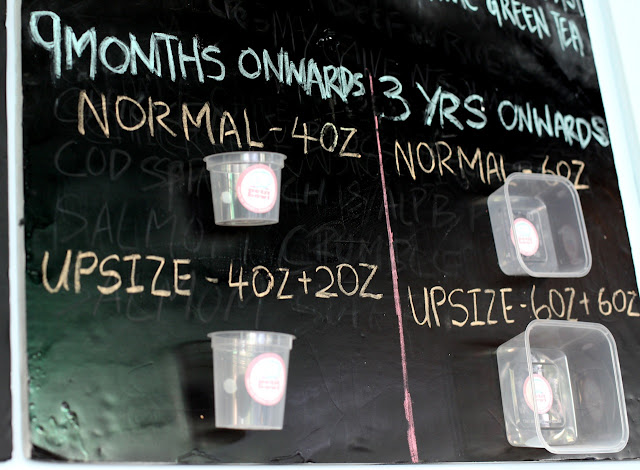 GREEN TEA
9 MONTHS ONWARDS
NORMAL - 4OZ
UPSIZE - 4OZ + 2OZ
3 YRS ONWARDS
NORMAL - 6OZ
UPSIZE - 6OZ + 6OZ
COD
SALMON